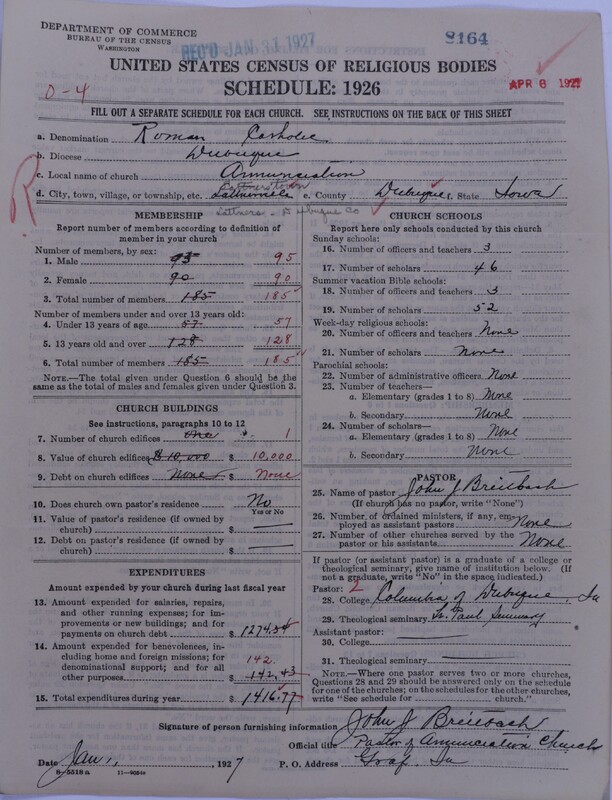 DEPARTMENT OF COMMERCE
BUREAU OF THE CENSUS
WASHINGTON
REC'D JAN 31 1927
8164
UNITED STATES CENSUS OF RELIGIOUS BODIES
SCHEDULE: 1926
0-4
APR 6 1927
FILL OUT A SEPARATE SCHEDULE FOR EACH CHURCH. SEE INSTRUCTIONS ON THE BACK OF THIS SHEET
a. Denomination Roman Catholic
b. Diocese Dubuque
c. Local name of church Annunciation
d. City, town, village, or township, etc. e. County Dubuque f. State Iowa
R
MEMBERSHIP
Report number of members according to definition of member in your church
Number of members, by sex:
1. Male 95 95
2. Female 90 90
3. Total number of members 185 185
Number of members under and over 13 years old:
4. Under 13 years of age 57 57
5. 13 years old and over 128 128
6. Total number of members 185 185
NOTE.—The total given under Question 6 should be the same as the total of males and females given under Question 3.
CHURCH BUILDINGS
See instructions, paragraphs 10 to 12
7. Number of church edifices one 1
8. Value of church edifices $10,000 $ 10,000
9. Debt on church edifices None $ None
10. Does church own pastor's residence No
Yes or No
11. Value of pastor's residence (if owned by church) $
12. Debt on pastor's residence (if owned by church) $
EXPENDITURES
Amount expended by your church during last fiscal year
13. Amount expended for salaries, repairs, and other running expenses; for improvements or new buildings; and for payments on church debt $ 1274.34
14. Amount expended for benevolences, including home and foreign missions; for denominational support; and for all other purposes $ 142.43
142.
15. Total expenditures during year $ 1416.77
CHURCH SCHOOLS
Report here only schools conducted by this church
Sunday schools:
16. Number of officers and teachers 3
17. Number of scholars 46
Summer vacation Bible schools:
18. Number of officers and teachers 3
19. Number of scholars 52
Week-day religious schools:
20. Number of officers and teachers None
21. Number of scholars None
Parochial schools:
22. Number of administrative officers None
23. Number of teachers—
a. Elementary (grades 1 to 8) None
b. Secondary None
24. Number of scholars—
a. Elementary (grades 1 to 8) None
b. Secondary None
PASTOR
25. Name of pastor John J Breitbach
(If church has no pastor, write "None")
26. Number of ordained ministers, if any, employed as assistant pastors None
27. Number of other churches served by the pastor or his assistants None
If pastor (or assistant pastor) is a graduate of a college or theological seminary, give name of institution below. (If not a graduate, write "No" in the space indicated.)
Pastor: 2
28. College Columbia of Dubuque, Ia
29. Theological seminary St. Paul Seminary
Assistant pastor:
30. College
31. Theological seminary
NOTE.—Where one pastor serves two or more churches, Questions 28 and 29 should be answered only on the schedule for one of the churches; on the schedules for the other churches, write "See schedule for church."
Signature of person furnishing information John J Breitbach
Official title Pastor of Annunciation Church
Date Jan 1, 1927 P. O. Address Graf Ia